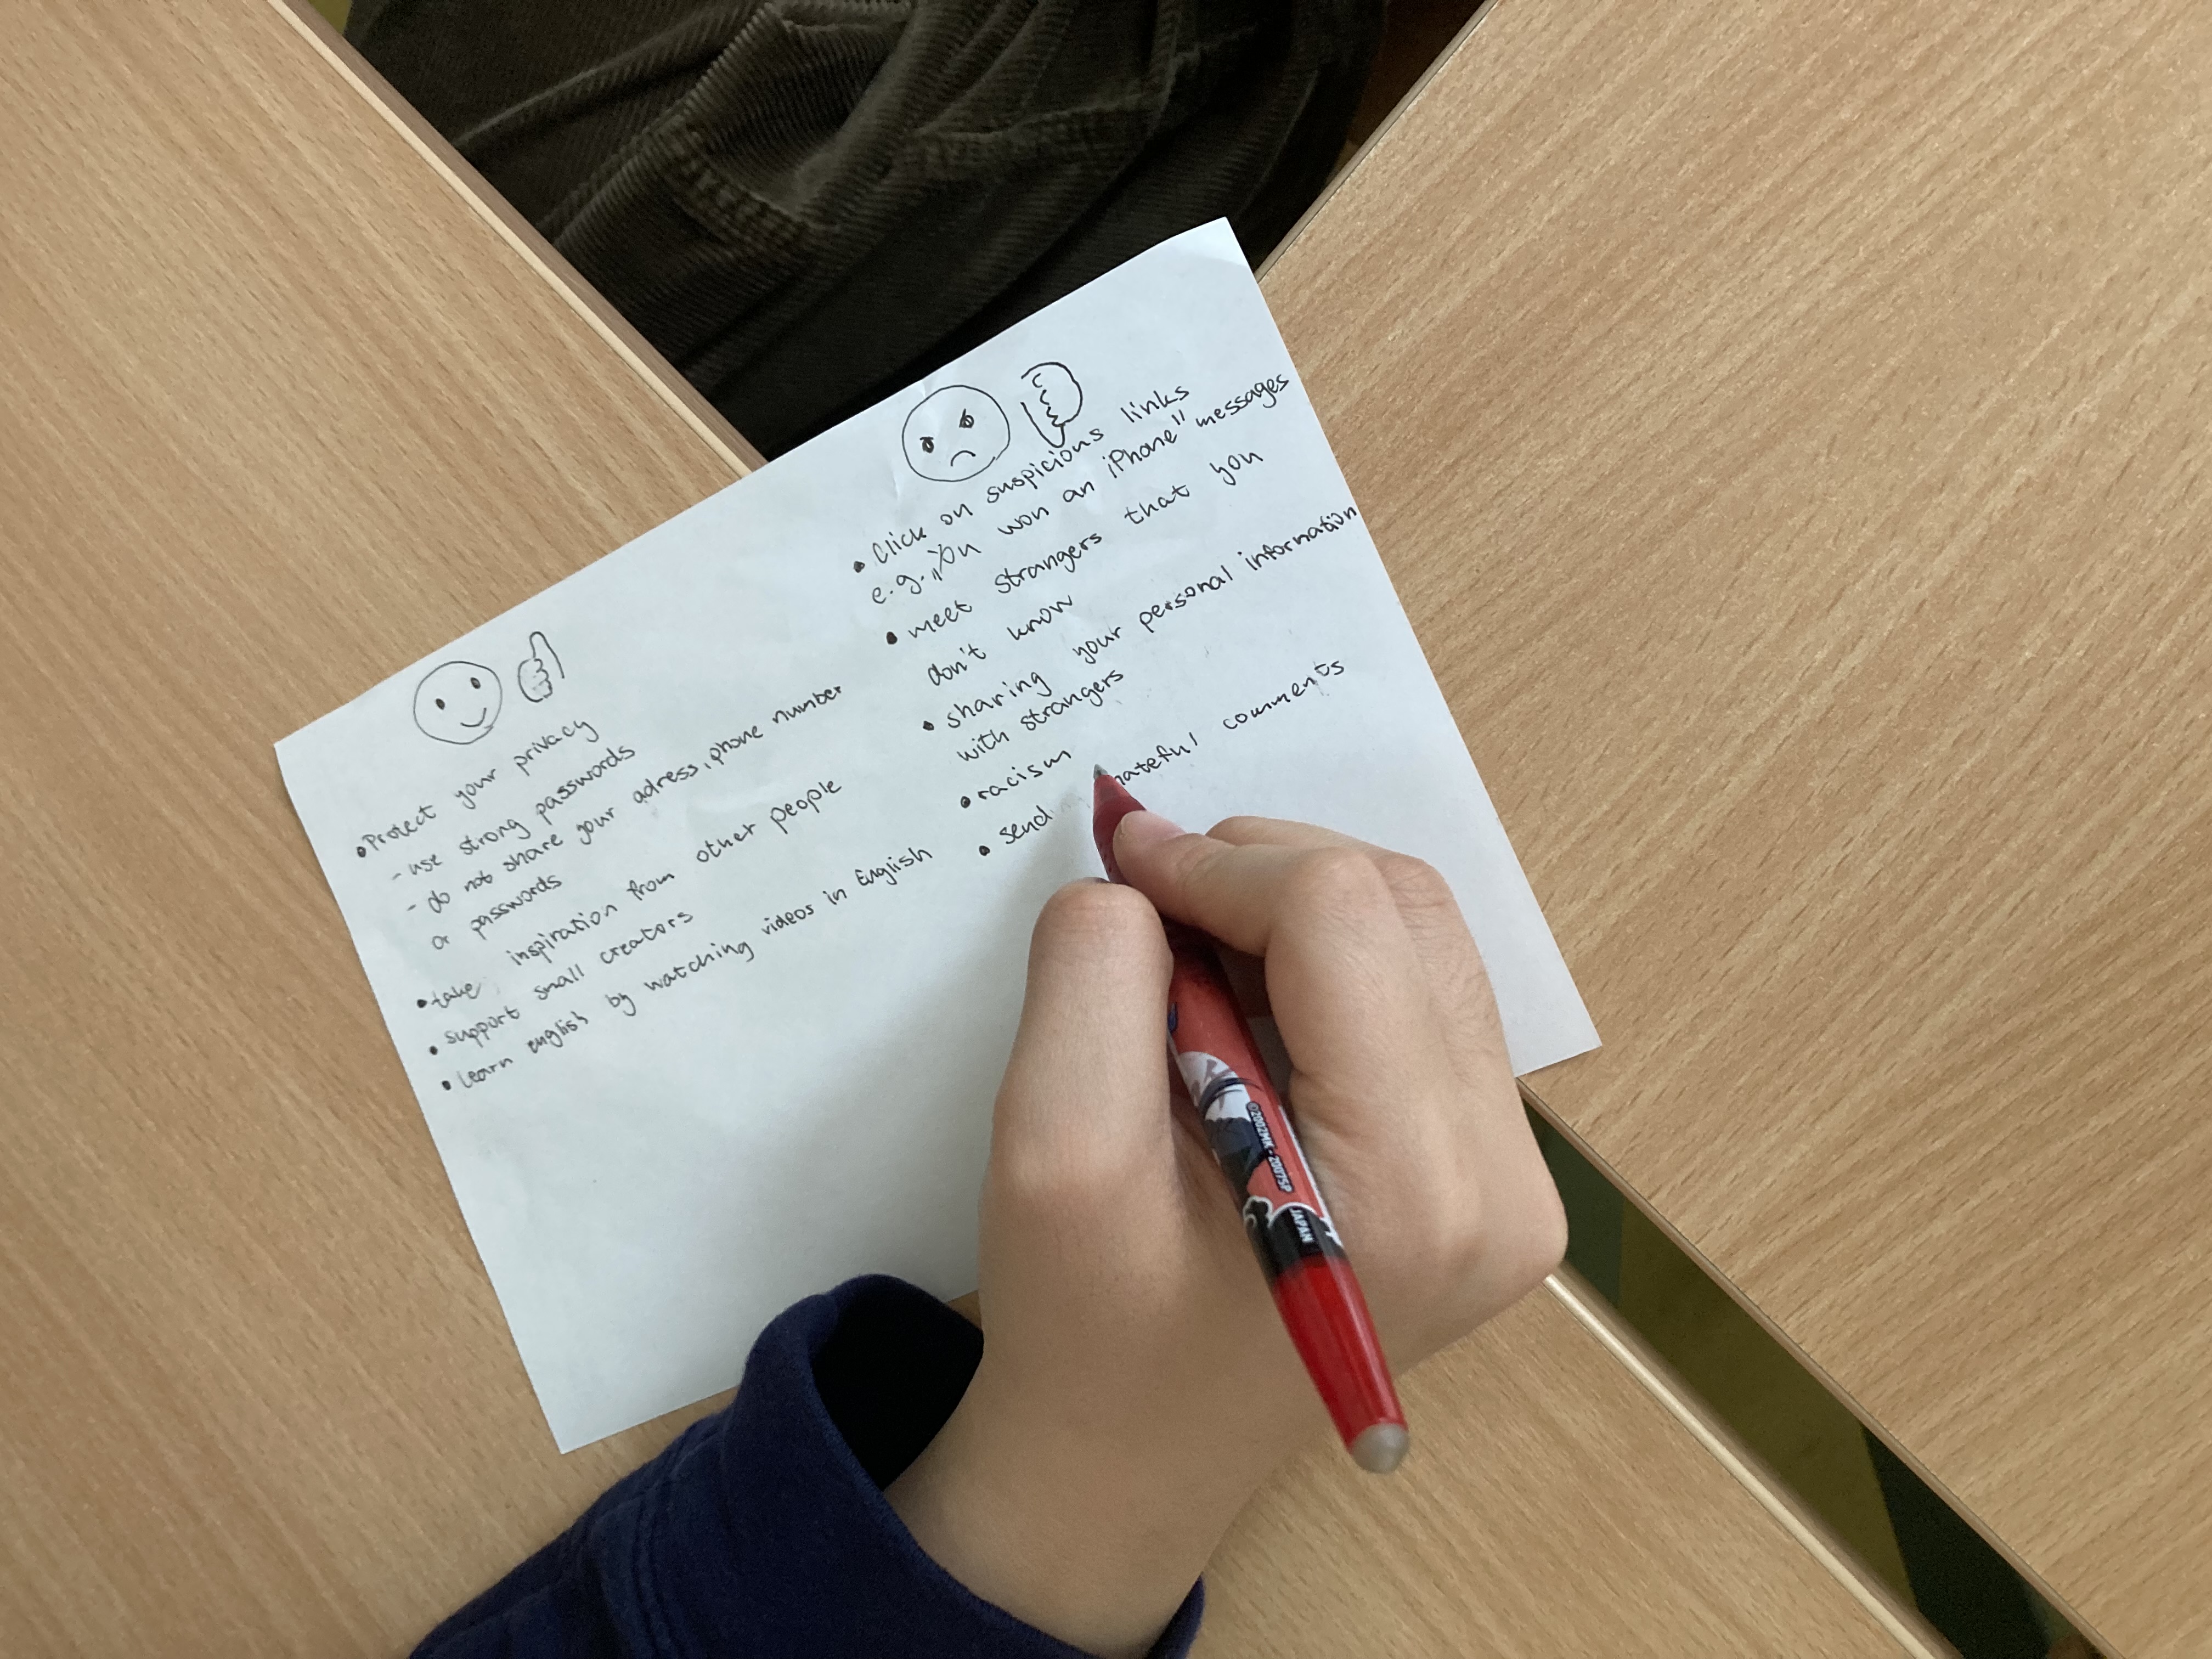 • Protect your privacy
- use strong passwords
- do not share your adress, phone number
or passwords
• take inspiration from other people
• support small creators
• learn english by watching videos in English
• Click on suspicious links
e.g. „You won an iPhone" messages
• meet strangers that you
don't know
• sharing your personal information
with strangers
• racism
• send hateful comments
©2002MK · 2007SP
JAPAN